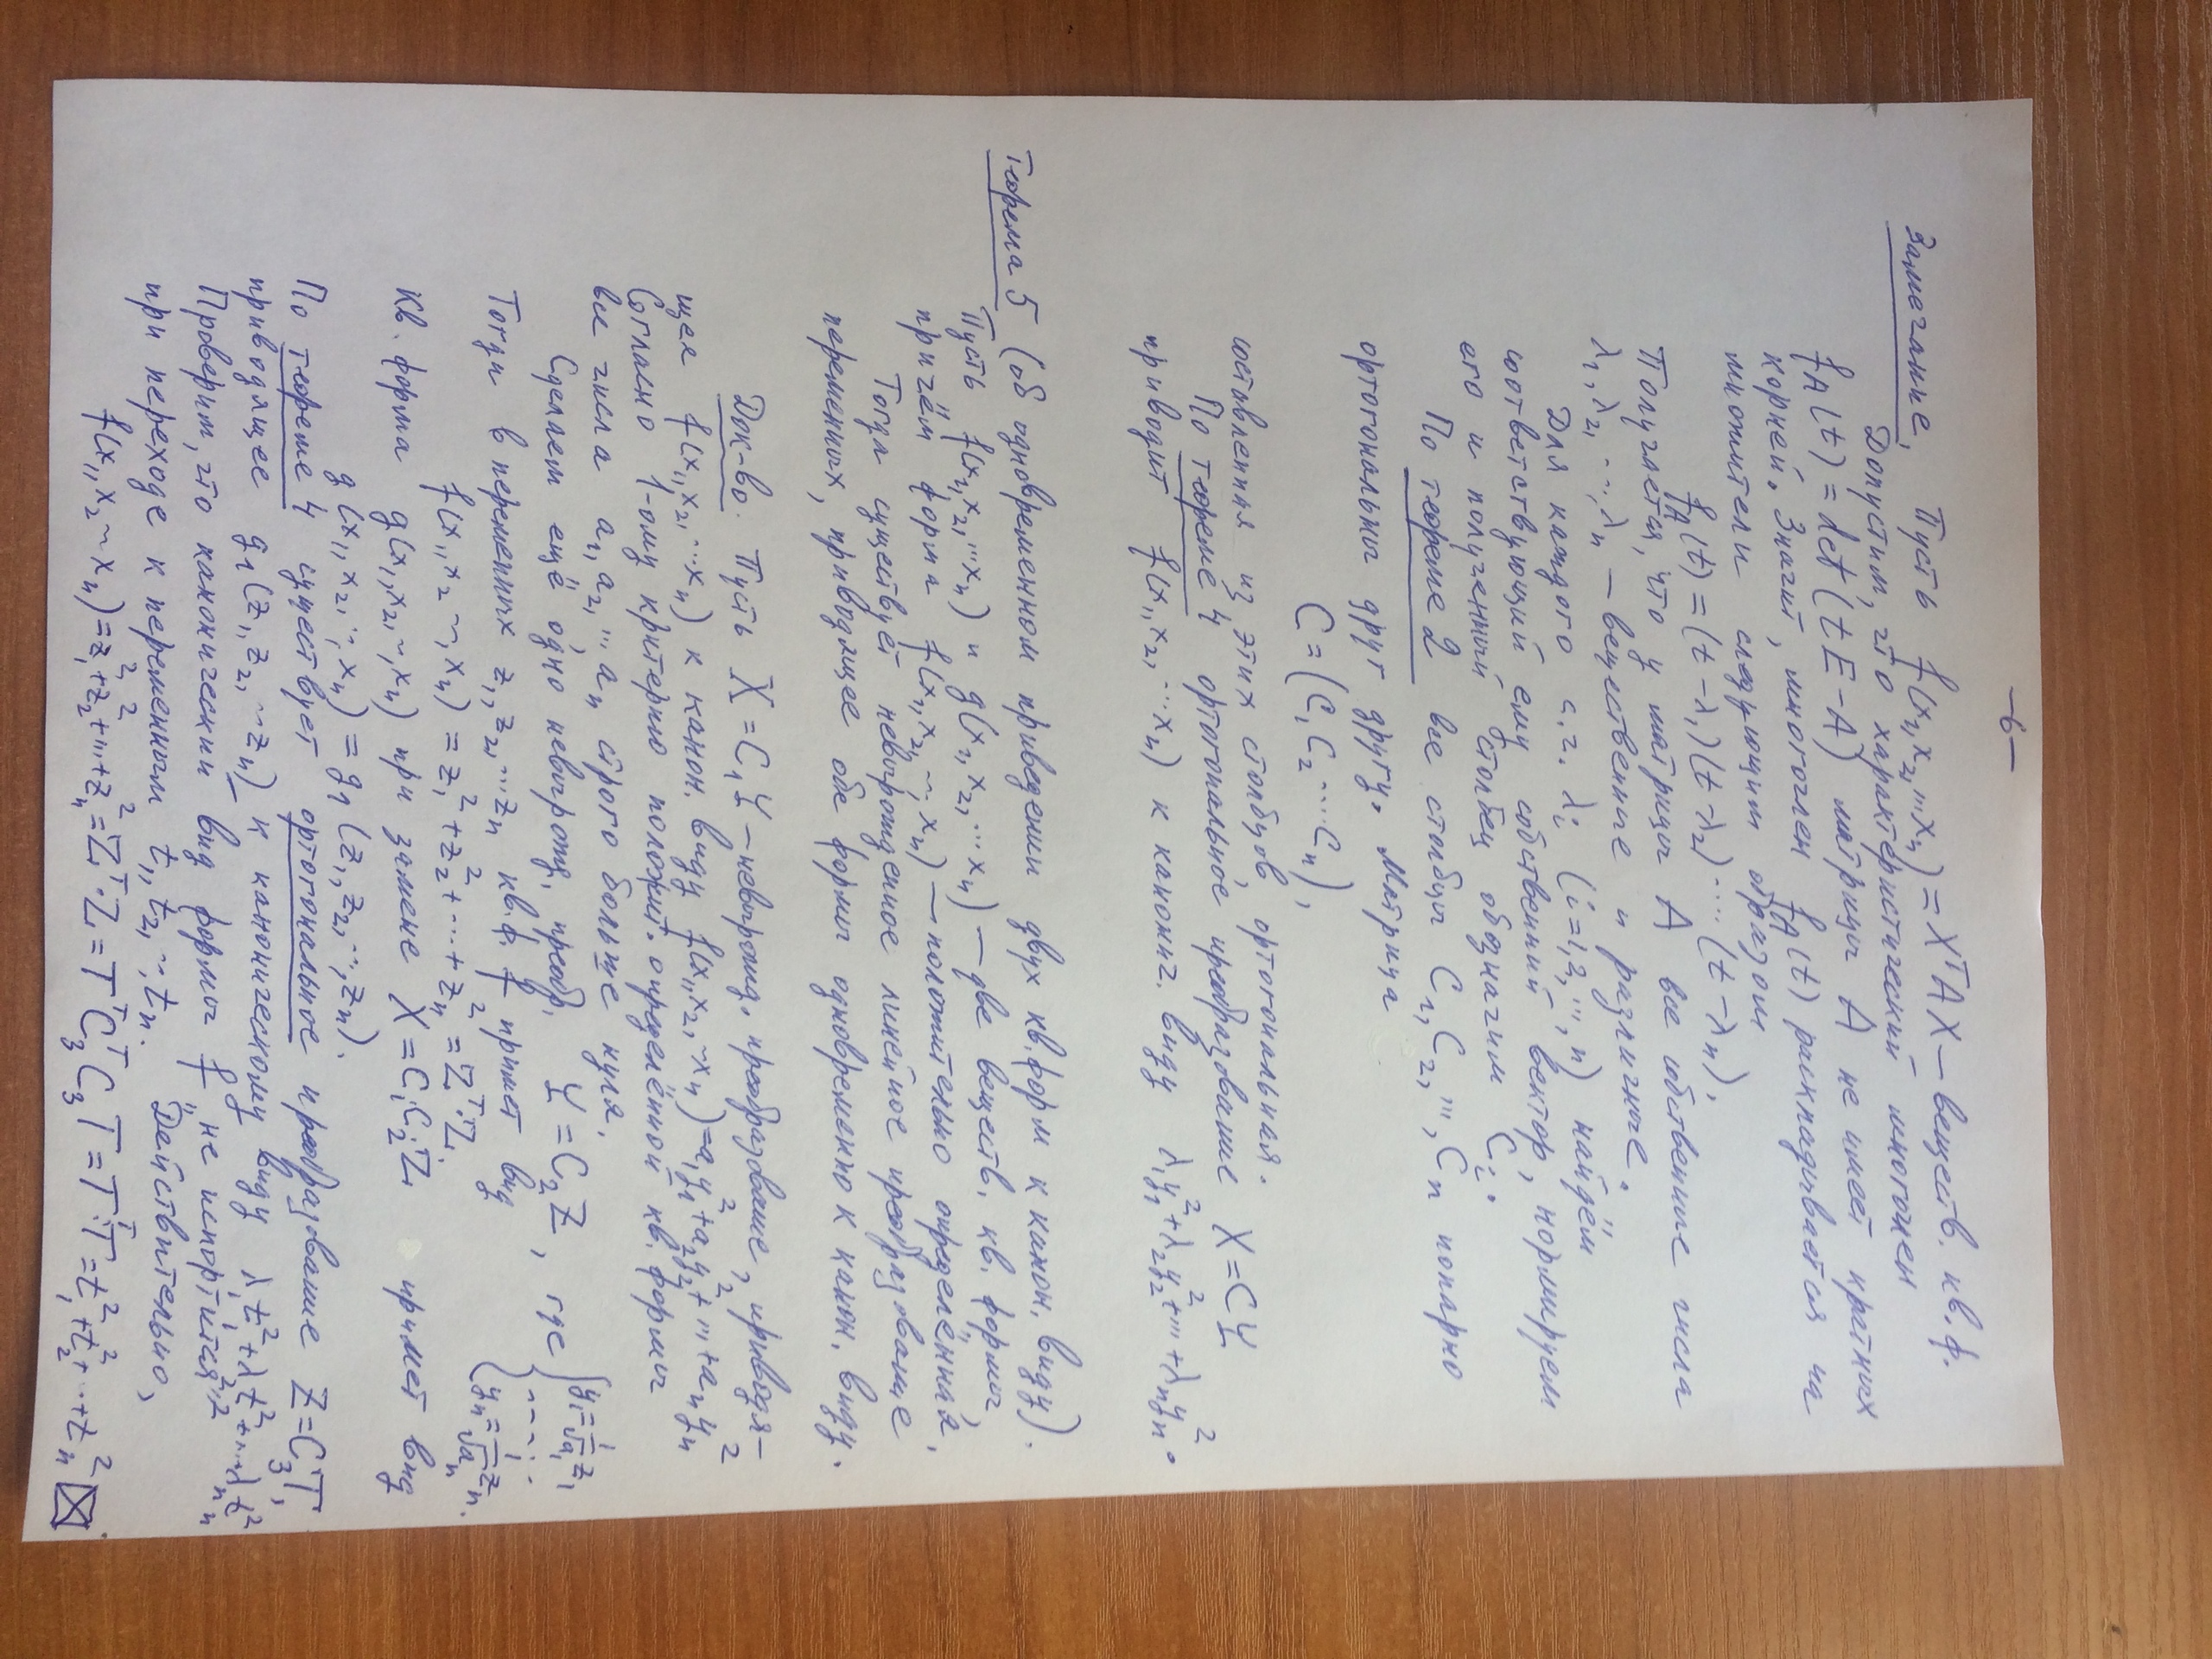 —6—
Замечание. Пусть f(x₁,x₂,...xₙ) = XᵀAX — веществ. кв. ф.
Допустим, что характеристический многочлен
f_A(t) = det(tE−A) матрицы A не имеет кратных
корней. Значит, многочлен f_A(t) раскладывается на
множители следующим образом
f_A(t) = (t−λ₁)(t−λ₂)....(t−λₙ).
Получается, что у матрицы A все собственные числа
λ₁,λ₂,...,λₙ — вещественные и различные.
Для каждого с.ч. λᵢ (i=1,2,...,n) найдём
соответствующий ему собственный вектор, нормируем
его и полученный столбец обозначим Cᵢ.
По теореме 2 все столбцы C₁,C₂,...,Cₙ попарно
ортогональны друг другу. Матрица
C = (C₁C₂....Cₙ),
составленная из этих столбцов, ортогональная.
По теореме 4 ортогональное преобразование X=CY
приводит f(x₁,x₂,...xₙ) к канонич. виду λ₁y₁²+λ₂y₂²+...+λₙyₙ².
Теорема 5 (об одновременном приведении двух кв. форм к канон. виду).
Пусть f(x₁,x₂,...xₙ) и g(x₁,x₂,...xₙ) — две веществ. кв. формы,
причём форма f(x₁,x₂,...,xₙ) — положительно определённая.
Тогда существует невырожденное линейное преобразование
переменных, приводящее обе формы одновременно к канон. виду.
Док-во. Пусть X=C₁Y — невырожд. преобразование, приводя-
щее f(x₁,x₂,...xₙ) к канон. виду f(x₁,x₂,...xₙ)=a₁y₁²+a₂y₂²+...+aₙyₙ²
Согласно 1-ому критерию положит. определённой кв. формы
все числа a₁,a₂,...aₙ строго больше нуля.
Сделаем ещё одно невырожд. преобр. Y=C₂Z, где { y₁=1/√a₁ z₁ ..... yₙ=1/√aₙ zₙ.
Тогда в переменных z₁,z₂,...zₙ кв.ф. f примет вид
f(x₁,x₂...,xₙ) = z₁²+z₂²+...+zₙ² = Zᵀ·Z.
Кв. форма g(x₁,x₂,...,xₙ) при замене X=C₁·C₂·Z примет вид
g(x₁,x₂,...,xₙ) = g₁(z₁,z₂,...,zₙ).
По теореме 4 существует ортогональное преобразование Z=C₃T,
приводящее g₁(z₁,z₂,...zₙ) к каноническому виду λ₁t₁²+λ₂t₂²+...λₙtₙ²
Проверим, что канонический вид формы f „не испортится“
при переходе к переменным t₁,t₂,...,tₙ. Действительно,
f(x₁,x₂...xₙ)=z₁²+z₂²+...+zₙ²=Zᵀ·Z=TᵀC₃ᵀC₃T=Tᵀ·T=t₁²+t₂²+...+tₙ² ⊠